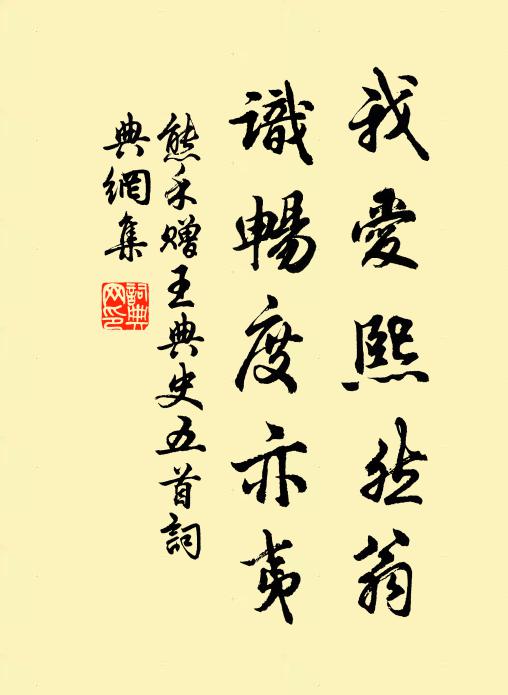 我愛熙然翁
識暢度亦夷
熊禾贈王典史五首詞
典網集
詞典
网印